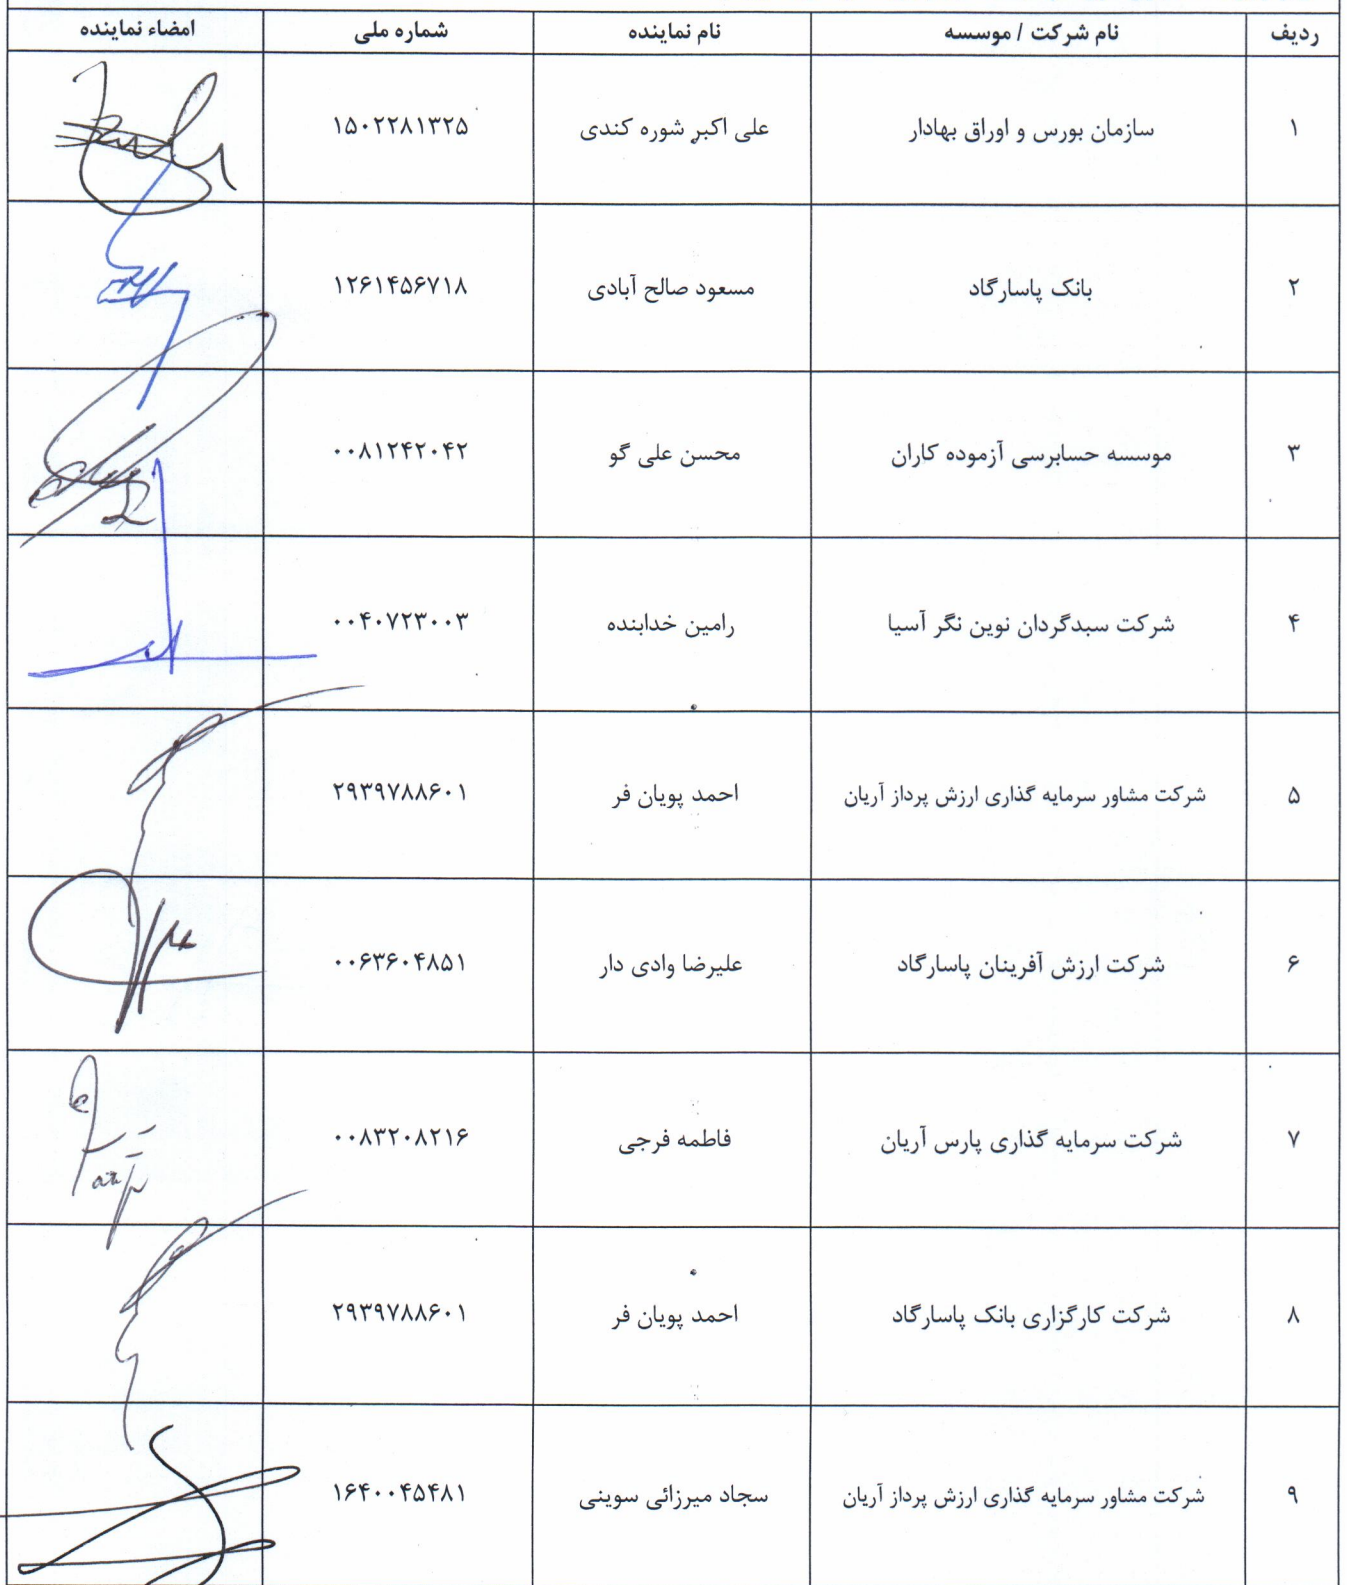 ردیف نام شرکت / موسسه نام نماینده شماره ملی امضاء نماینده
۱ سازمان بورس و اوراق بهادار علی اکبر شوره کندی ۱۵۰۲۲۸۱۳۲۵
۲ بانک پاسارگاد مسعود صالح آبادی ۱۲۶۱۴۵۶۷۱۸
۳ موسسه حسابرسی آزموده کاران محسن علی گو ۰۰۸۱۲۴۲۰۴۲
۴ شرکت سبدگردان نوین نگر آسیا رامین خدابنده ۰۰۴۰۷۲۳۰۰۳
۵ شرکت مشاور سرمایه گذاری ارزش پرداز آریان احمد پویان فر ۲۹۳۹۷۸۸۶۰۱
۶ شرکت ارزش آفرینان پاسارگاد علیرضا وادی دار ۰۰۶۳۶۰۴۸۵۱
۷ شرکت سرمایه گذاری پارس آریان فاطمه فرجی ۰۰۸۳۲۰۸۲۱۶
۸ شرکت کارگزاری بانک پاسارگاد احمد پویان فر ۲۹۳۹۷۸۸۶۰۱
۹ شرکت مشاور سرمایه گذاری ارزش پرداز آریان سجاد میرزائی سوینی ۱۶۴۰۰۴۵۴۸۱